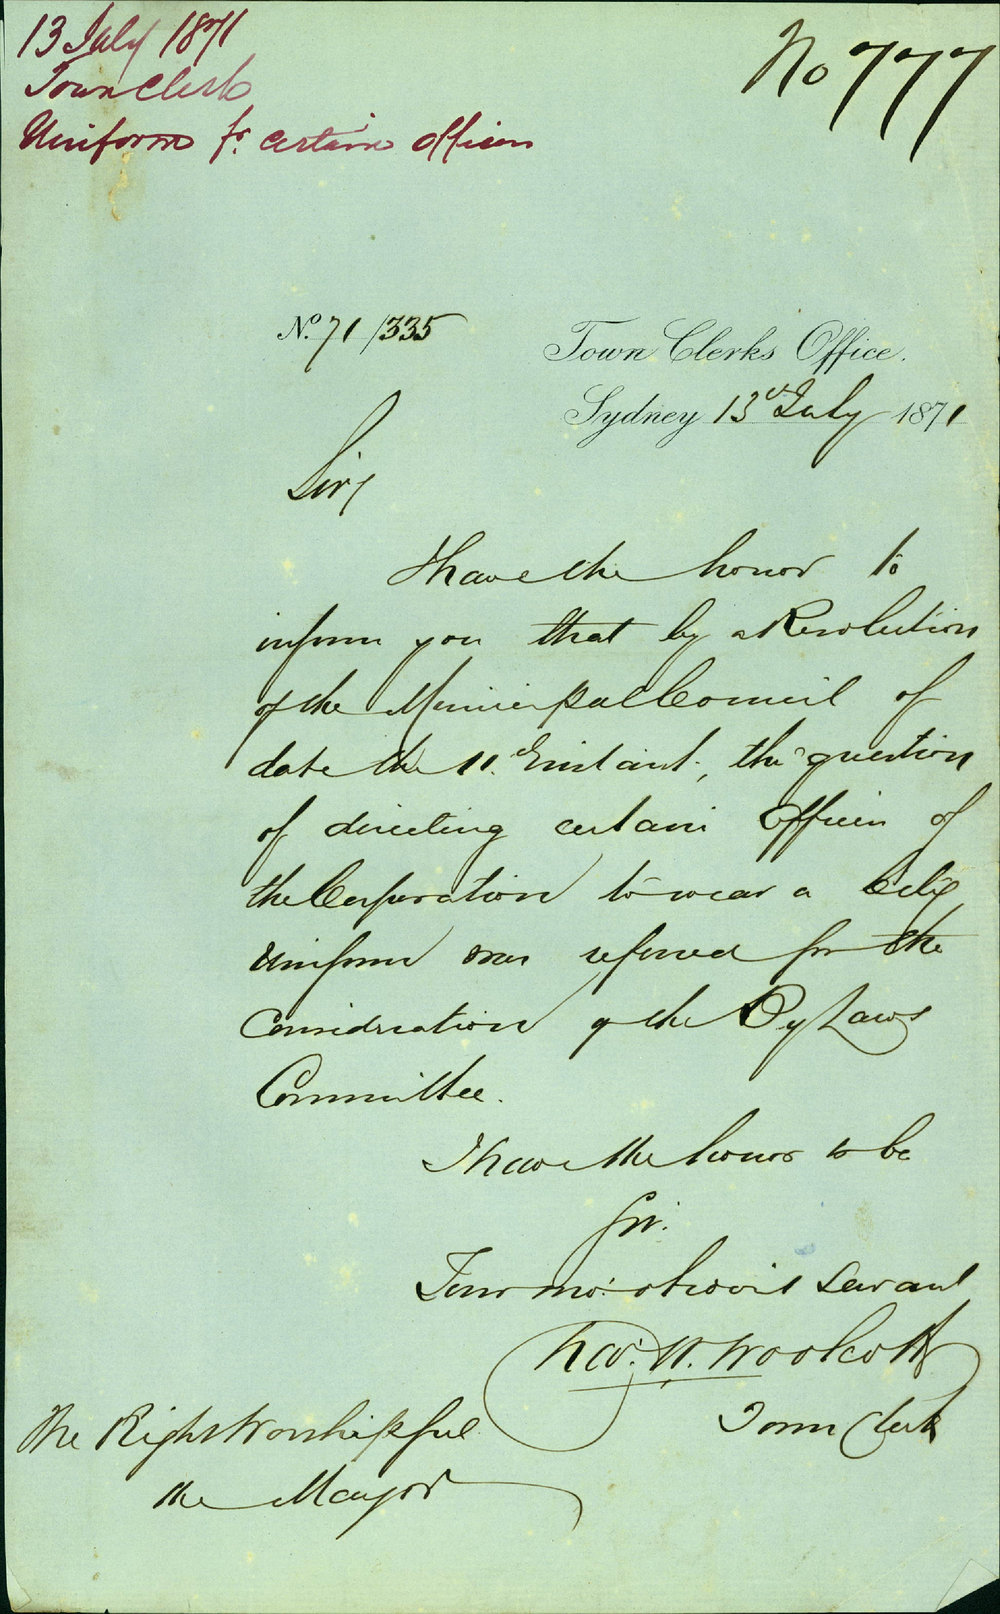 13 July 1871
Town Clerk
Uniform fr. certain officers
No 777
No. 71/335
Town Clerks Office.
Sydney 13th July 1871
Sir,
I have the honor to
inform you that by a Resolution
of the Municipal Council of
date the 11th Instant, the question
of directing certain Officers of
the Corporation to wear a City
Uniform was referred for the
Consideration of the By Laws
Committee.
I have the honor to be
Sir.
Your mo: obedient Servant
Chas. H. Woolcott
Town Clerk
The Right Worshipful
the Mayor